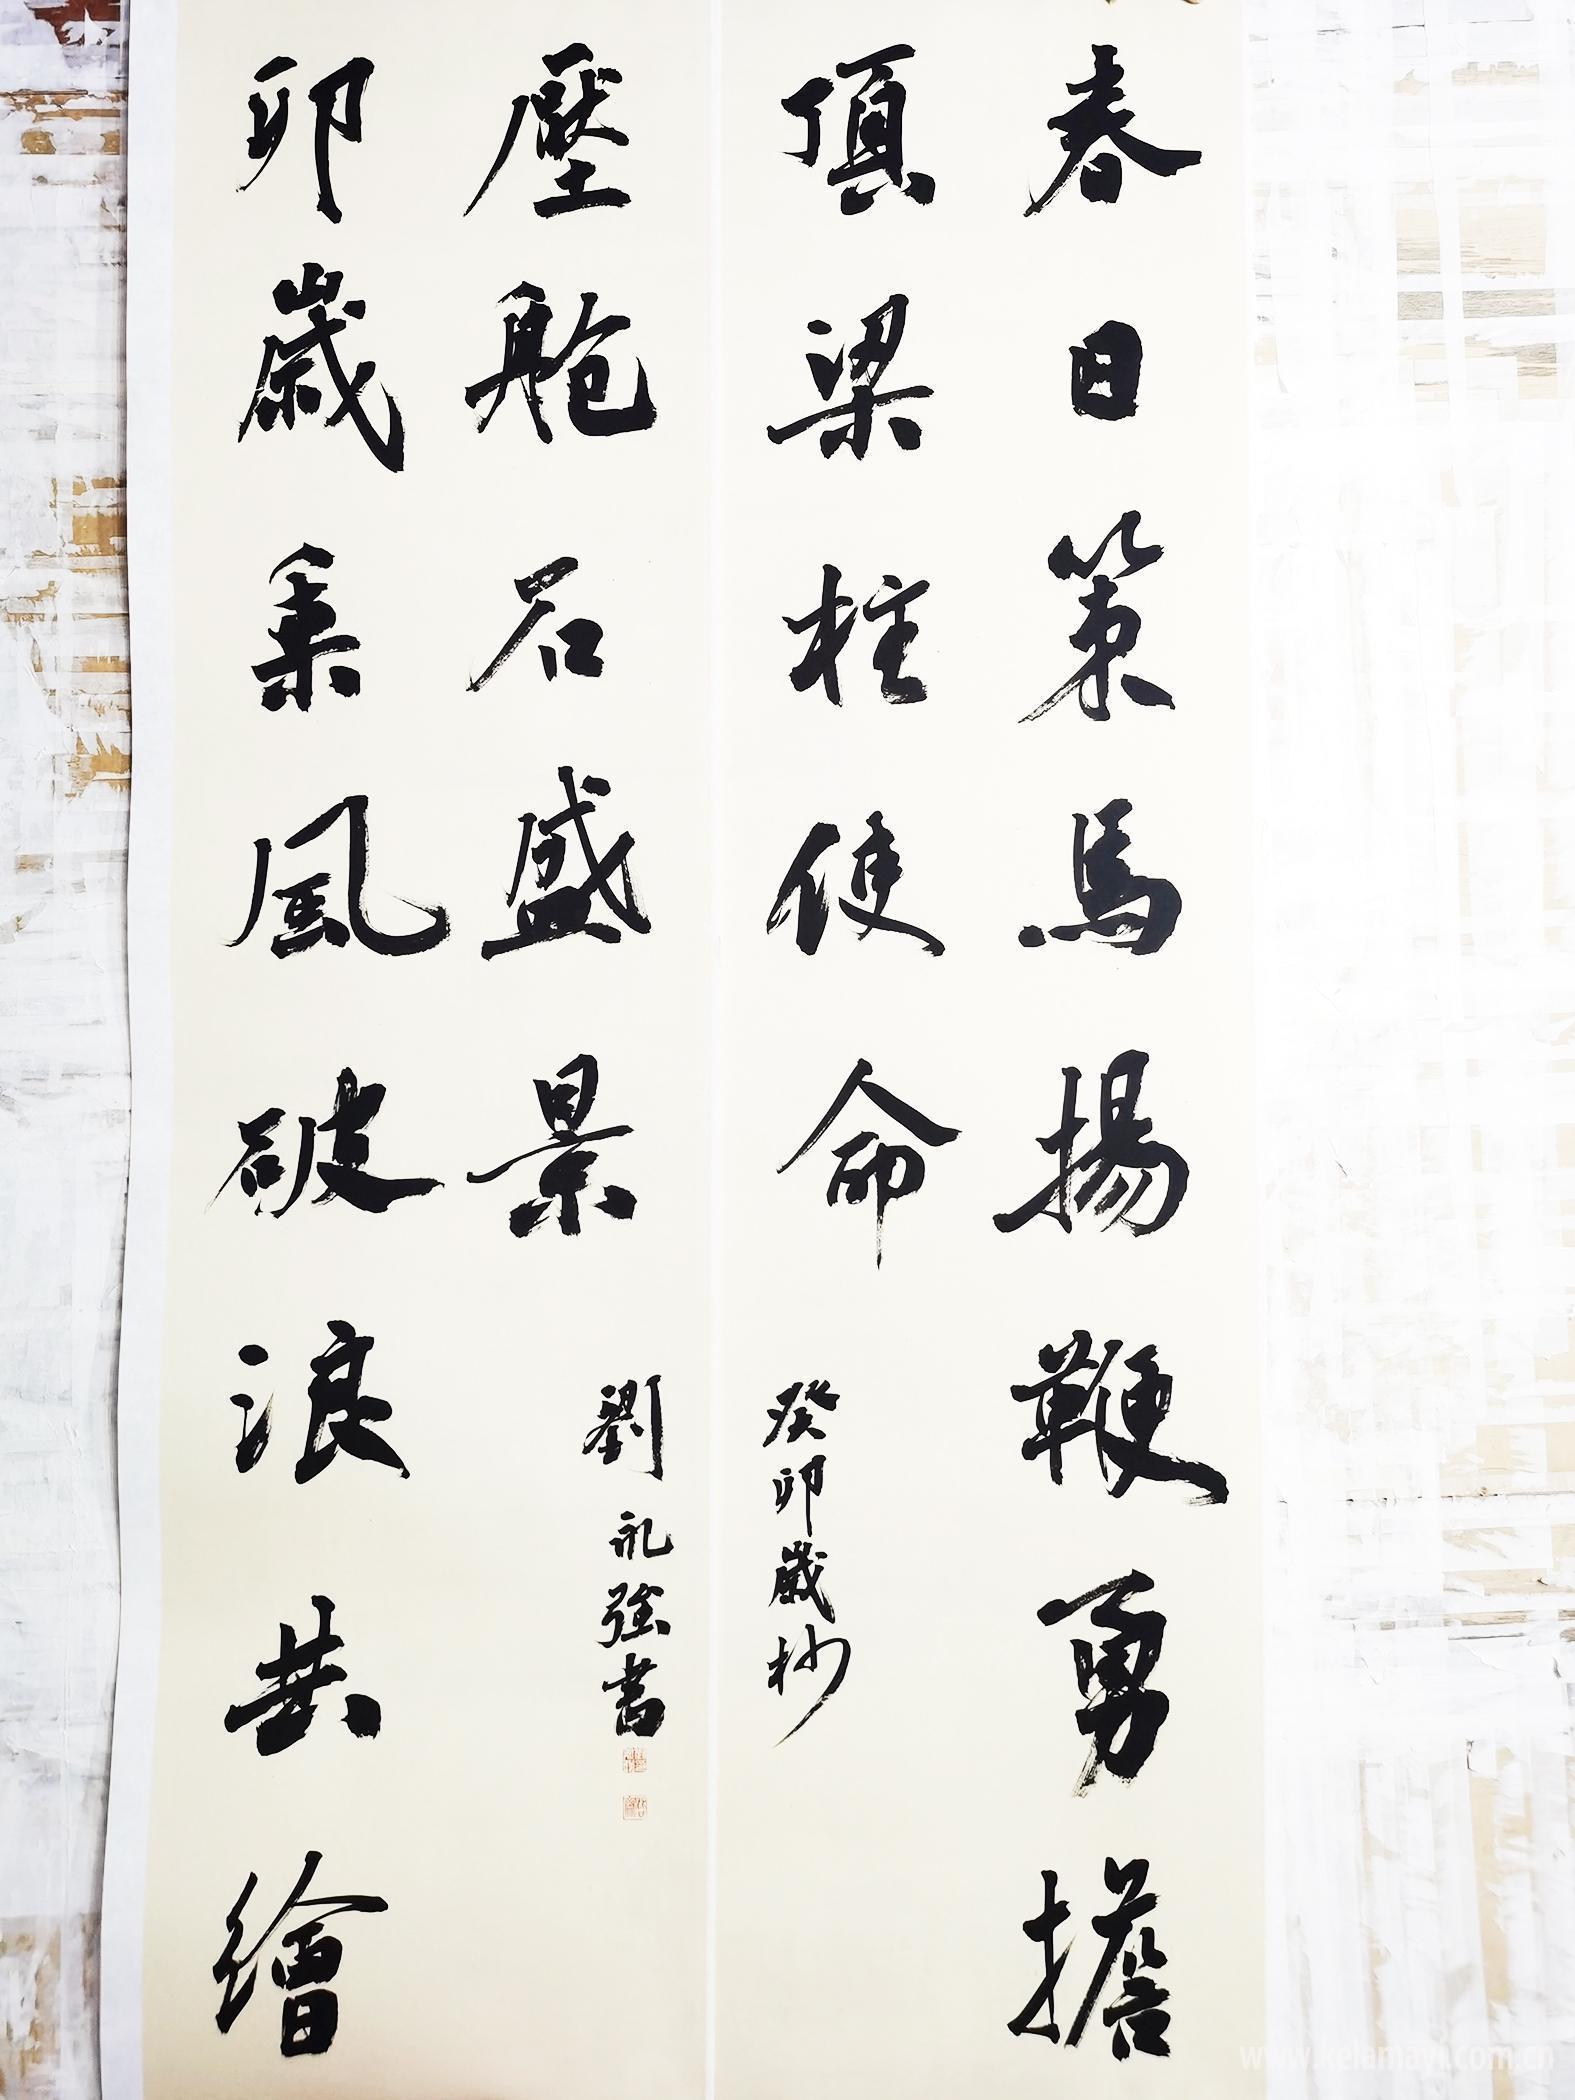 春日策馬揚鞭勇擔
頂梁柱使命
癸卯歲杪
卯歲乘風破浪共繪
壓艙石盛景
劉礼強書
www.kelamayi.com.cn